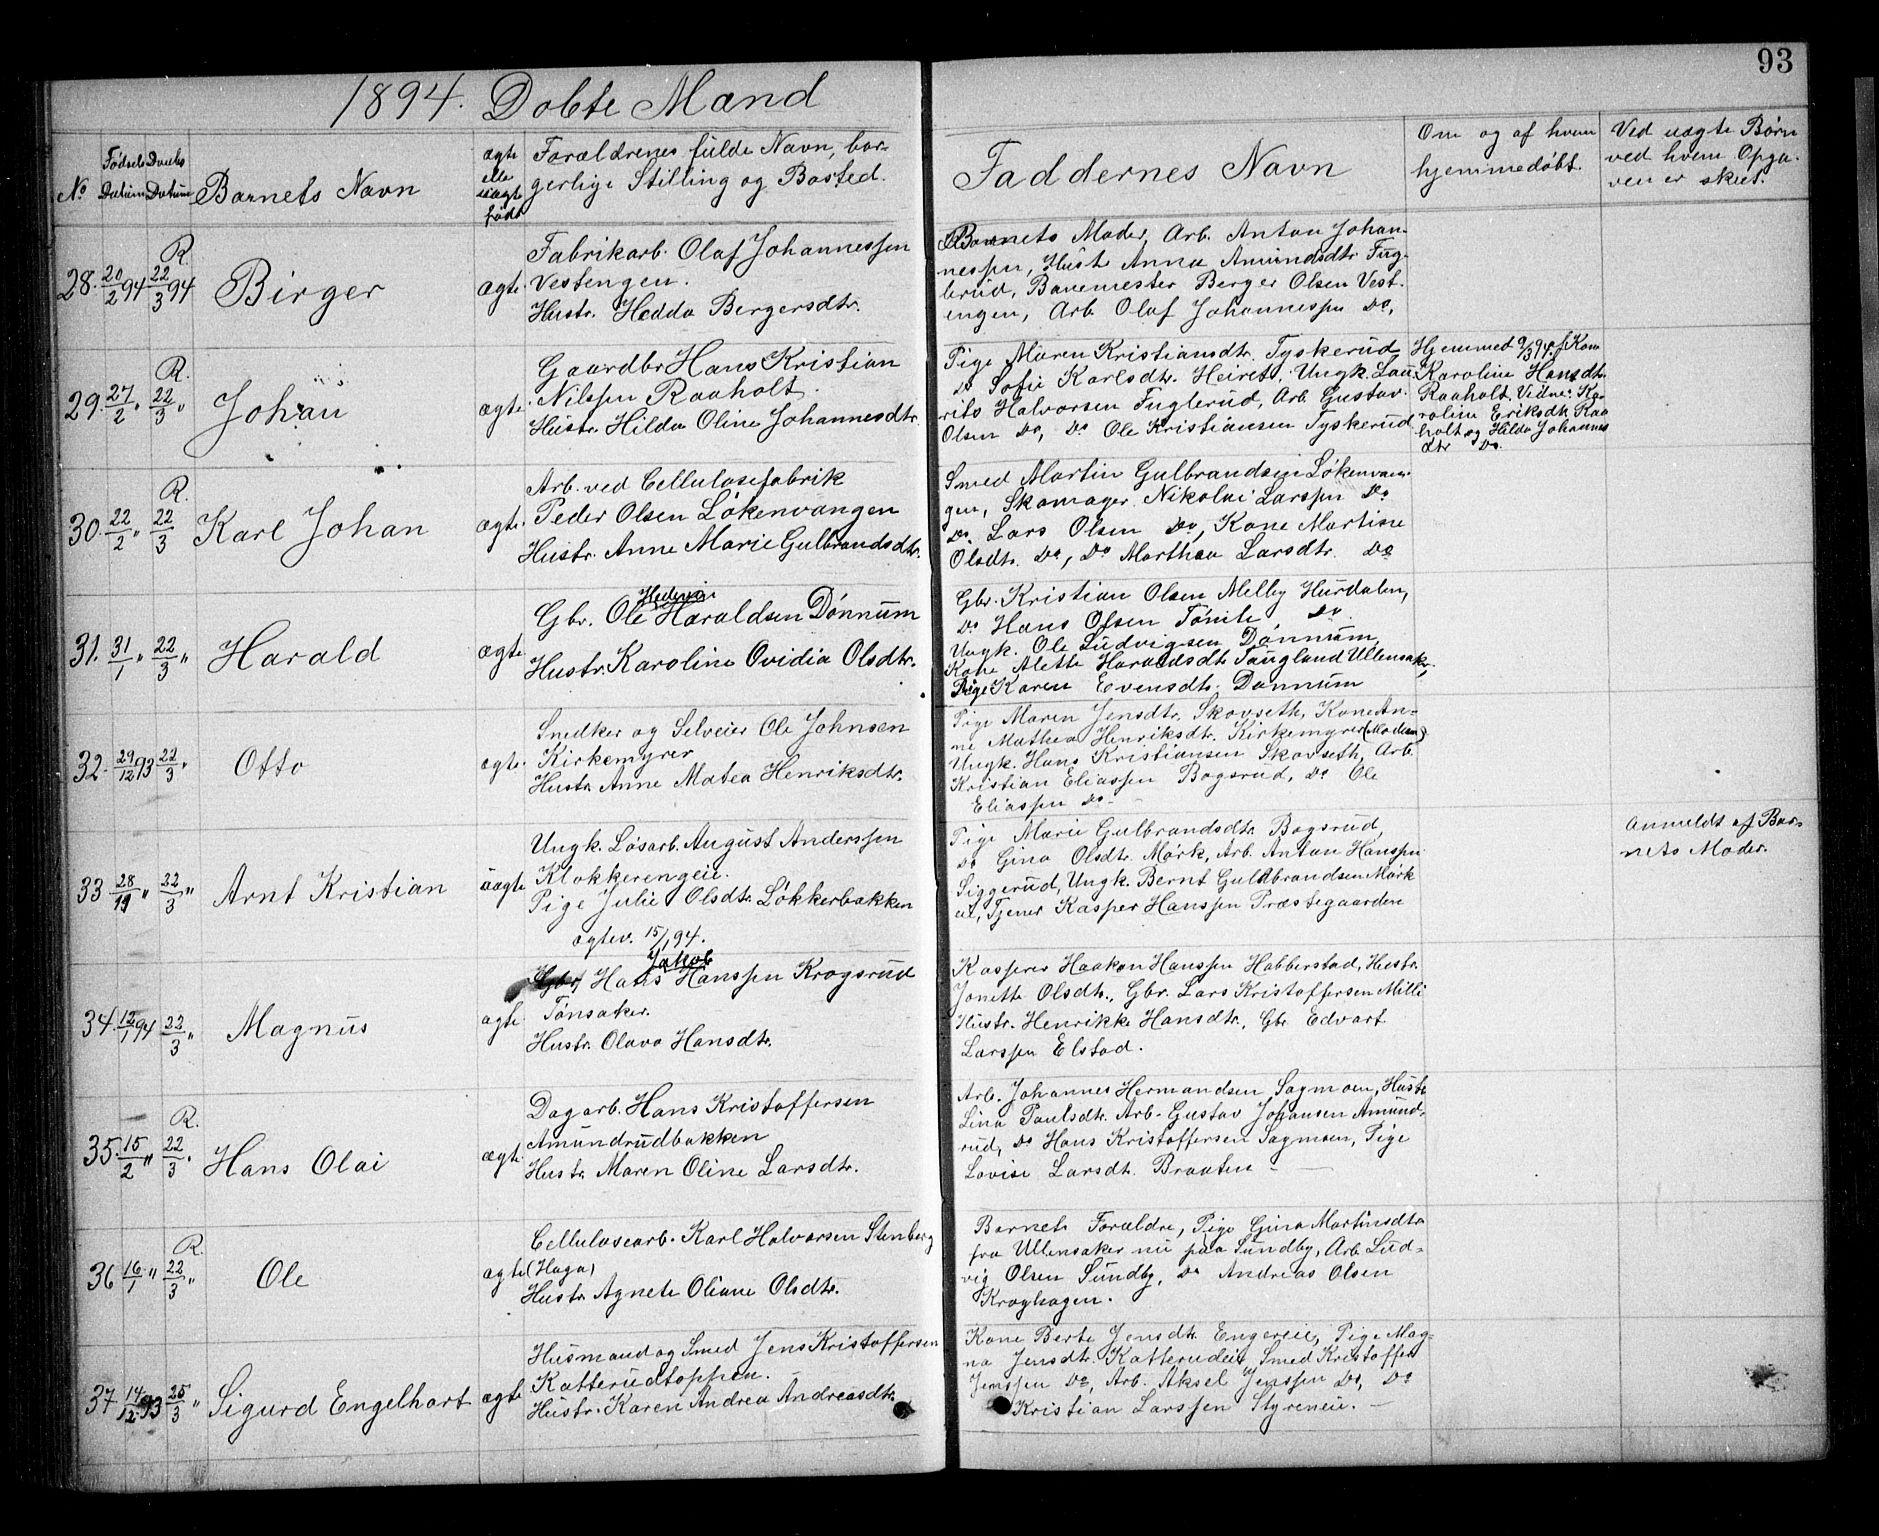 93
1894. Døbte Mænd
No
Fødsels Datum
Daabs Datum
Barnets Navn
ægte elle uægte født
Forældrenes fulde Navn, bor-
gerlige Stilling og Bosted.
Faddernes Navn
Om og af hvem
hjemmedøbt.
Ved uægte Børn
ved hvem Opga-
ven er skeet.
R.
28. 20/2 94 22/3 94 Birger ægte.
Fabrikarb. Olaf Johannessen
Vestengen.
Hustr. Hedda Bergersdtr.
Barnets Moder, Arb. Anton Johan-
nessen, Hustr Anna Amundsdtr Fug-
lerud, Banemester Berger Olsen Vest-
engen, Arb. Olaf Johannessen Do,
R.
29. 27/2 " 22/3 " Johan ægte.
Gaardbr Hans Kristian
Nilssen Raaholt.
Hustr. Hilda Oline Johannesdtr.
Pige Maren Kristiansdtr. Tyskerud
Do Sofie Karlsdtr. Heiret, Ungk. Lau-
rits Halvorsen Fuglerud, Arb. Gustav
Olsen Do, Do Ole Kristiansen Tyskerud
Hjemmed 9/3 94 af Kone
Karoline Hansdtr.
Raaholt, Vidne: Ka-
roline Eriksdtr. Raa-
holt og Hilda Johannes
dtr Do.
R.
30. 22/2 " 22/3 Karl Johan ægte.
Arb. ved Cellulosefabrik
Peder Olsen Løkenvangen
Hustr. Anne Marie Gulbrandsdtr.
Smed Martin Gulbrandsen Løkenvan-
gen, Skomager Nikolai Larssen Do
Do. Lars Olsen Do, Kone Martine
Olsdtr. Do, Do Marthea Larsdtr. Do
31. 31/1 " 22/3 " Harald ægte.
Gbr. Ole Haraldsen Dønnum
Hustr. Karoline Ovidia Olsdtr.
Gbr. Kristian Olsen Melby Hurdalen,
Do Hans Olsen Tønite Do
Ungk. Ole Ludvigsen Dønnum,
Kone Alette Haraldsdtr Taugland Ullensaker,
Pige Karen Evensdtr. Dønnum
32. 29/12 93 22/3 " Otto ægte.
Snedker og Selveier Ole Johnsen
Kirkemyrer
Hustr. Anne Matea Henriksdtr.
Pige Maren Jensdtr. Skovseth, Kone An-
ne Mathea Henriksdtr. Kirkemyrer (Moderen)
Ungk. Hans Kristiansen Skovseth, Arb.
Kristian Eliassen Bogsrud, Do Ole
Eliassen Do-
33 28/ " 22/3 " Arnt Kristian uægte
Ungk. Løsarb. August Anderssen
Klokkerengeie.
Pige Julie Olsdtr. Løkkerbakken
ægtev. 15/1 94.
Pige Marie Gulbrandsdtr. Bogsrud,
Do Gina Olsdtr. Mørk, Arb. Anton Hanssen
Siggerud, Ungk. Bernt Gulbrandsen Mørk
ei, Tjener Kasper Hanssen Præstegaarden
Anmeldt af Bar-
nets Moder.
34. 12/1 94 22/3 " Magnus ægte.
Jakob
Gbr. Hans Hanssen Krogsrud
Tønsaker.
Hustr. Olava Hansdtr.
Kasperer Haakon Hanssen Habberstad, Hustr.
Jonette Olsdtr., Gbr. Lars Kristoffersen Milli
Hustr. Henrikke Hansdtr., Gbr Edvart
Larssen Elstad.
R.
35. 15/2 " 22/3 " Hans Olai ægte.
Dagarb. Hans Kristoffersen
Amundrudbakken
Hustr. Maren Oline Larsdtr.
Arb. Johannes Hermandsen Sagmoen, Hustr
Lina Paulsdtr. Arb. Gustav Johansen Amund-
rud, Do Hans Kristoffersen Sagmoen, Pige
Lovise Larsdtr. Braaten -
R.
36 16/1 " 22/3 " Ole ægte
Cellulosearb. Karl Halvorsen Stenberg
(Haga)
Hustr. Agnete Oliane Olsdtr.
Barnets Forældre, Pige Gina Martinsdtr
fra Ullensaker nu paa Sundby, Arb. Lud-
vig Olsen Sundby, Do Andreas Olsen
Kroghagen.
37 14/12 93 25/3 " Sigurd Engelhart ægte
Husmand og Smed Jens Kristoffersen
Katterudtoppen.
Hustr. Karen Andrea Andreasdtr.
Kone Berte Jensdtr. Engereie, Pige Mag-
na Jensdtr. Katterudeie Smed Kristoffer
Jenssen Do, Arb. Aksel Jenssen Do, Do
Kristian Larssen Styreneie. -